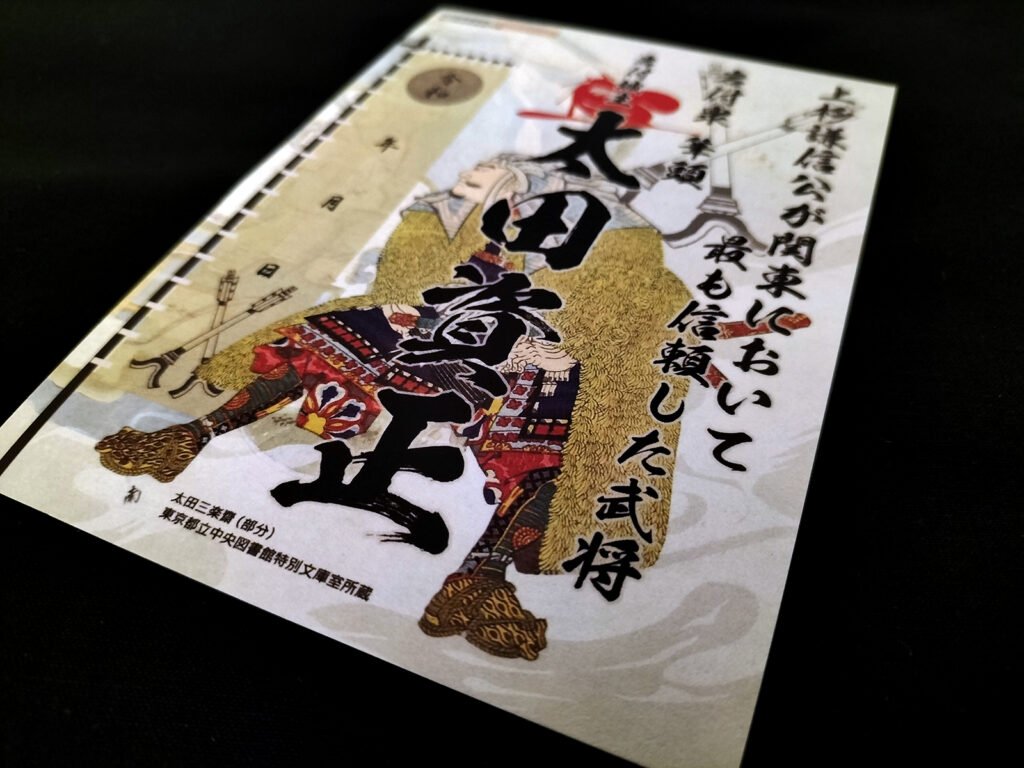 上杉謙信公が関東において
最も信頼した武将
筆頭
太田資正
令和
年
月
日
太田三楽齋(部分)
東京都立中央図書館特別文庫室所蔵